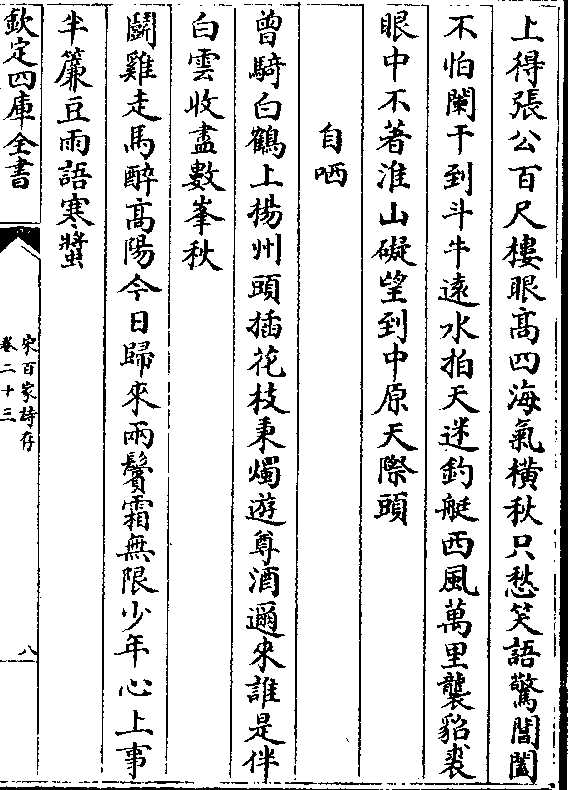 上得張公百尺樓眼高四海氣橫秋只愁笑語驚閶闔
不怕闌干到斗牛遠水拍天迷釣艇西風萬里襲貂裘
眼中不著淮山礙望到中原天際頭
自哂
曾騎白鶴上楊州頭插花枝秉燭遊尊酒邇來誰是伴
白雲收盡數峯秋
鬬雞走馬醉高陽今日歸來兩鬢霜無限少年心上事
半簾豆雨語寒螿
欽定四庫全書
宋百家詩存
卷二十三
八